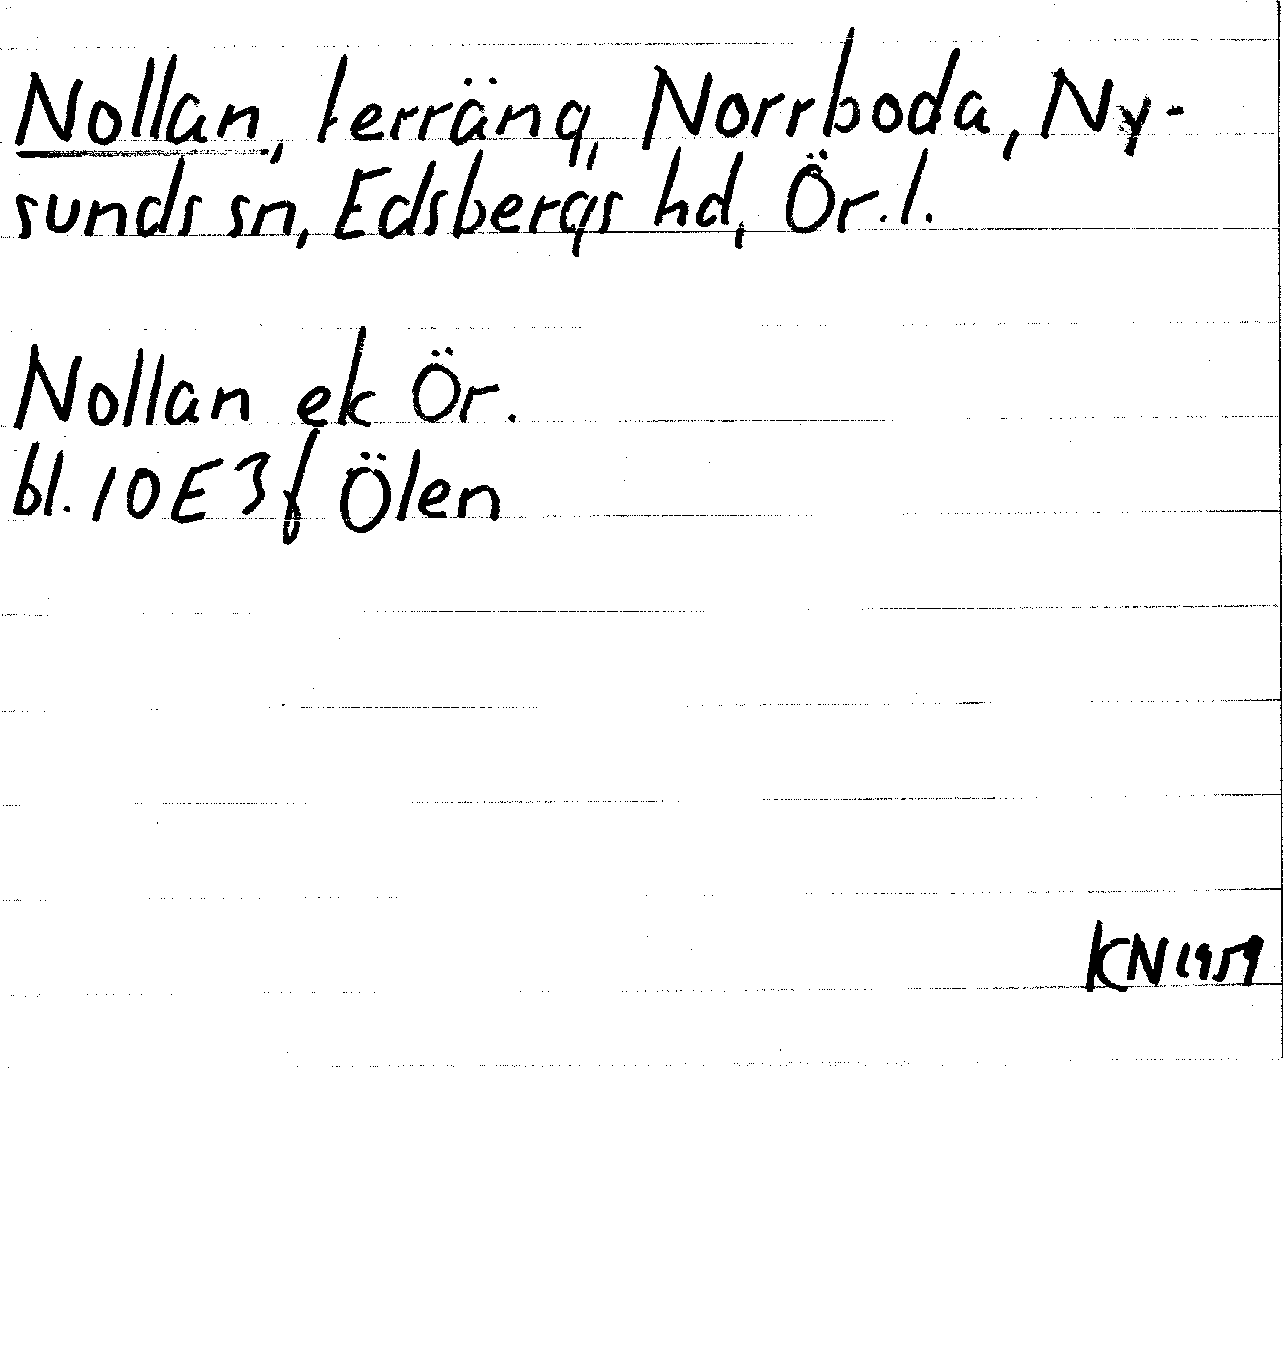 Nollan, terräng, Norrboda, Ny-
sunds sn, Edsbergs hd, Ör.l.
Nollan ek Ör.
bl. 10E3f Ölen
KN1959